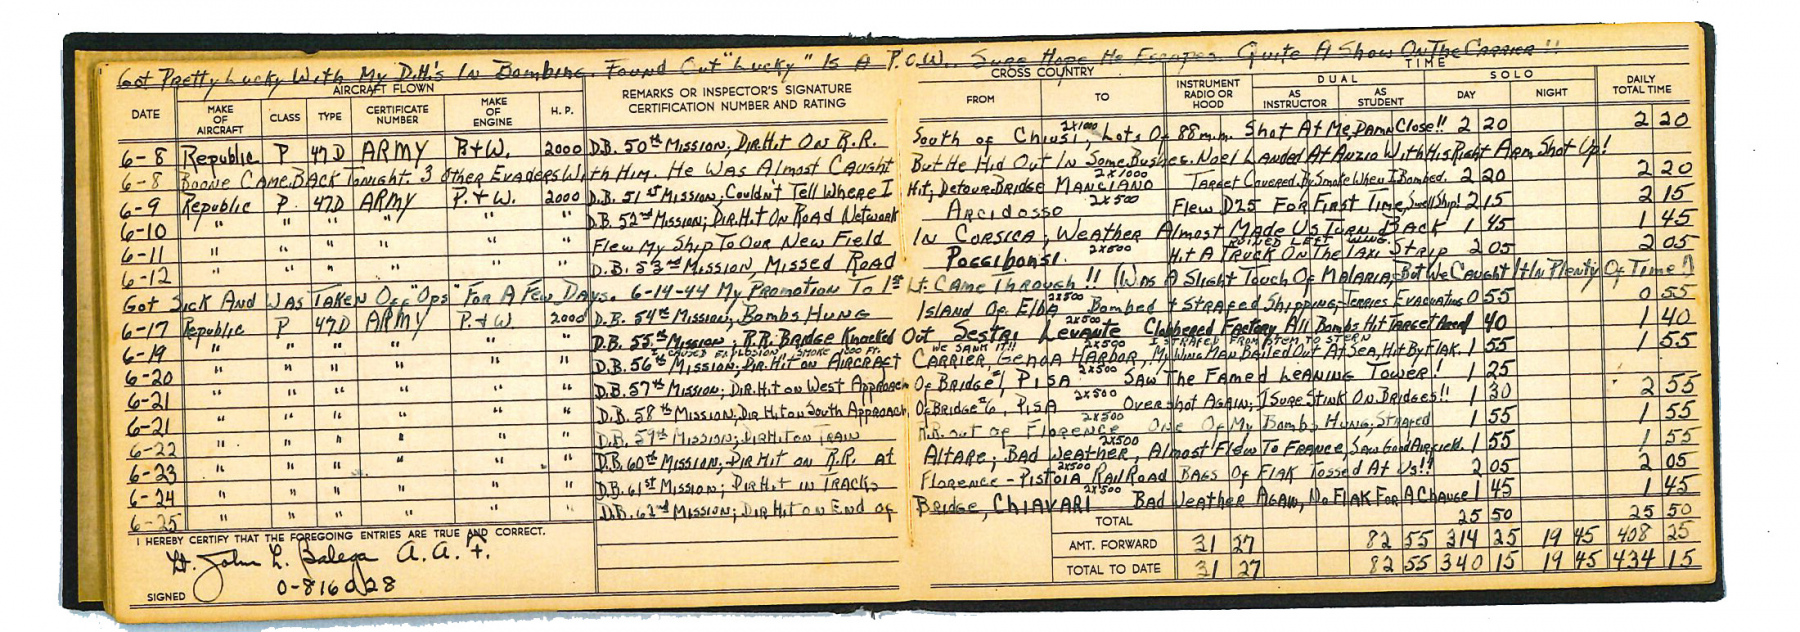 Got Pretty Lucky With My D.H.'s In Bombing. Found Out "Lucky" Is A P.O.W.. Sure Hope He Escapes. Quite A Show On The Carrier!!
DATE
AIRCRAFT FLOWN
MAKE OF AIRCRAFT
CLASS
TYPE
CERTIFICATE NUMBER
MAKE OF ENGINE
H. P.
REMARKS OR INSPECTOR'S SIGNATURE CERTIFICATION NUMBER AND RATING
CROSS COUNTRY
FROM
TO
INSTRUMENT RADIO OR HOOD
TIME
DUAL
AS INSTRUCTOR
AS STUDENT
SOLO
DAY
NIGHT
DAILY TOTAL TIME
6-8 Republic P 47D ARMY P.+W. 2000 D.B. 50th Mission; Dir. Hit On R.R. South of Chiusi, 2x1000 Lots Of 88 m.m. Shot At Me, Damn Close!! 2 20 2 20
6-8 Boone Came Back Tonight. 3 Other Evaders With Him. He Was Almost Caught But He Hid Out In Some Bushes. Noel Landed At Anzio With His Right Arm Shot Up!
6-9 Republic P. 47D ARMY P.+W. 2000 D.B. 51st Mission; Couldn't Tell Where I Hit, Detour Bridge MANCIANO 2x1000 Target Covered By Smoke When I Bombed. 2 20 2 20
6-10 " " " " " " D.B. 52nd Mission; Dir. Hit On Road Network Arcidosso 2x500 Flew D25 For First Time, Swell Ship! 2 15 2 15
6-11 " " " " " " Flew My Ship To Our New Field In Corsica; Weather Almost Made Us Turn Back 1 45 1 45
6-12 " " " " " " D.B. 53rd Mission, Missed Road Poggibonsi. 2x500 Hit A Truck On The Taxi Strip Ruined Left Wing. 2 05 2 05
Got Sick And Was Taken Off "Ops" For A Few Days. 6-14-44 My Promotion To 1st Lt. Came Through!! (Was A Slight Touch Of Malaria, But We Caught It In Plenty Of Time!)
6-17 Republic P 47D ARMY P.+W. 2000 D.B. 54th Mission; Bombs Hung Island Of Elba 2x500 Bombed + Strafed Shipping, Jerries Evacuating 0 55 0 55
6-19 " " " " " " D.B. 55th Mission; R.R. Bridge Knocked Out Sestri Levante 2x500 Clobbered Factory, All Bombs Hit Target Area 1 40 1 40
I Caused Explosion, Smoke 1000 Ft. We Sank It!! 2x500 I Strafed From Stem To Stern
6-20 " " " " " " D.B. 56th Mission; Dir. Hit on Aircraft Carrier, Genoa Harbor, My Wing Man Bailed Out At Sea, Hit By Flak. 1 55 1 55
6-21 " " " " " " D.B. 57th Mission; Dir. Hit on West Approach Of Bridge #1, PISA 2x500 Saw The Famed Leaning Tower! 1 25
6-21 " " " " " " D.B. 58th Mission; Dir Hit on South Approach, Of Bridge #6, PISA 2x500 Overshot Again; I Sure Stink On Bridges!! 1 30 2 55
6-22 " " " " " " D.B. 59th Mission; Dir Hit on Train R.R. out of Florence 2x500 One Of My Bombs Hung; Strafed 1 55 1 55
6-23 " " " " " " D.B. 60th Mission; Dir Hit on R.R. at Altare; Bad Weather, 2x500 Almost Flew To France, Saw Good Airfield. 1 55 1 55
6-24 " " " " " " D.B. 61st Mission; Dir Hit in Tracks Florence - Pistoia Railroad 2x500 Bags Of Flak Tossed At Us!! 2 05 2 05
6-25 " " " " " " D.B. 62nd Mission; Dir Hit on End of Bridge, Chiavari 2x500 Bad Weather Again, No Flak For A Change 1 45 1 45
I HEREBY CERTIFY THAT THE FOREGOING ENTRIES ARE TRUE AND CORRECT.
TOTAL 25 50 25 50
AMT. FORWARD 31 27 82 55 314 25 19 45 408 25
TOTAL TO DATE 31 27 82 55 340 15 19 45 434 15
Lt. John L. A.A.F.
SIGNED